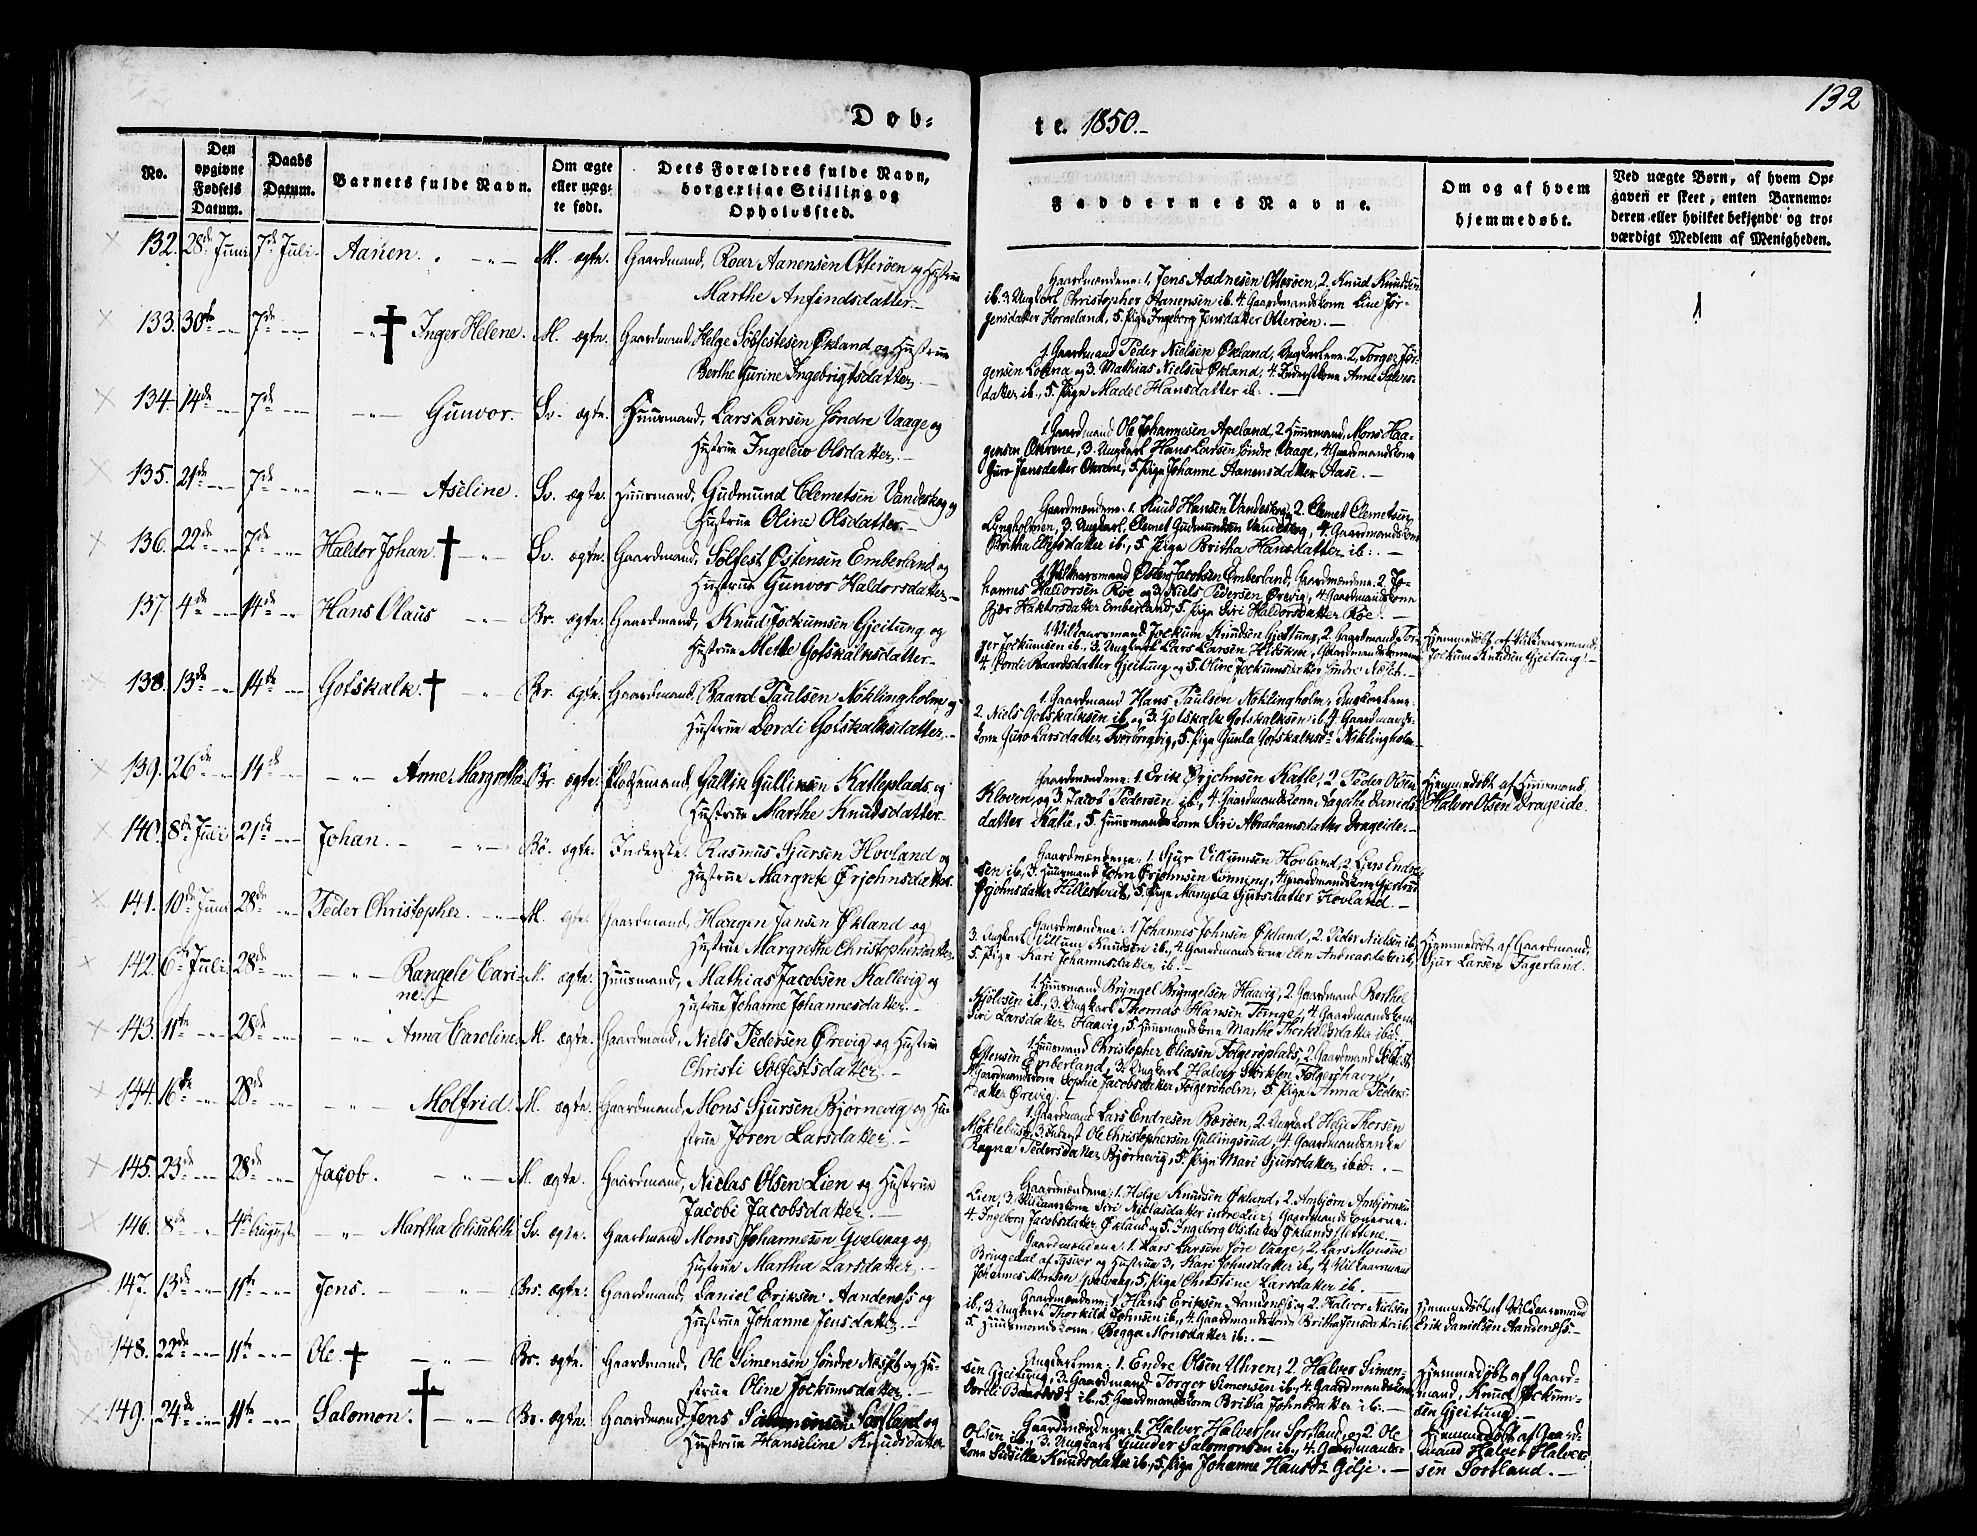 132
Døb-
te. 1850.-
No.
Den opgivne Fødsels Datum.
Daabs Datum.
Barnets fulde Navn.
Om ægte eller uæg-te født.
Dets Forældres fulde Navn, borgerlige Stilling og Opholdssted.
Faddernes Navne.
Om og af hvem hjemmedøbt.
Ved uægte Børn, af hvem Op-
gaven er skeet, enten Barnemo-
deren eller hvilket bekjendt og tro-
værdigt Medlem af Menigheden.
132. 28de Juni 7de Juli. Aanen. M. ægte. Gaardmand, Roar Aanensen Otterøen og Hustrue
Marthe Anfindsdatter.
Gaardmændene: 1. Jens Aadnesen Otterøen, 2. Knud Knudsen
ib. 3. Ungkarl Christopher Aanensen ib. 4. Gaardmandskone Line Jør-
gensdatter Horneland, 5. Pige Ingeborg Jensdatter Otterøen.
133. 30te 7de Inger Helene. M. ægte. Gaardmand, Helge Sølfestesen Økland og Hustrue
Berthe Gurine Ingebrigtsdatter.
1. Gaardmand Peder Nielsen Økland, Ungkarlene: 2. Torger Jør-
gensen og 3. Mathias Nielsen Økland, 4. Inderstkone Anne
datter ib., 5. Pige Madel Hansdatter ib.
134. 14de 7de Gunvor. Sv. ægte. Huusmand, Lars Larsen Søndre Vaage og
Hustrue Ingeleiv Olsdatter.
1. Gaardmand Ole Johannesen Apeland, 2. Huusmand, Mons Haa-
gensen 3. Ungkarl Hans Larsen Søndre Vaage, 4. Gaardmandskone
Guro Jensdatter 5. Pige Johanne Aanensdatter Aase.
135. 21de 7de Aseline. Sv. ægte. Huusmand, Gudmund Clemetsen Vandeskog og
Hustrue Oline Olsdatter.
Gaardmændene: 1. Knud Hansen Vandeskog, 2. Clemet Clemetsen
Lyngholmen, 3. Ungkarl, Clemet Gudmundsen Vandeskog, 4. Gaardmandskone
Britha ib., 5. Pige Britha Hansdatter ib.
136. 22de 7de Haldor Johan. Sv. ægte. Gaardmand, Sølfest Østensen Emberland og
Hustrue Gunvor Haldorsdatter.
1. Vilkaarsmand Østen Jacobsen Emberland, Gaardmændene: 2. Jo-
hannes Haldorsen Roe og 3. Niels Pedersen Ørevig, 4. Gaardmandskone
Emberland, 5. Pige Siri Haldorsdatter Roe.
137. 4de 14de Hans Olaus Br. ægte. Gaardmand, Knud Jockumsen Gjeitung og
Hustrue Mette Gotskalksdatter.
1. Vilkaarsmand Jockum Knudsen Gjeitung, 2. Gaardmand Tor-
ger Jockumsen ib., 3. Ungkarl Lars Larsen Gaardmandskonerne
4. Dordi Baardsdatter Gjeitung og 5. Oline Jockumsdatter Søndre
Hjemmedøbt af Vilkaarsmand,
Jockum Knudsen Gjeitung.
138. 13de 14de Gotskalk. Br. ægte. Gaardmand, Baard Paulsen Nøklingholm og
Hustrue Dordi Gotskalksdatter.
1. Gaardmand Hans Paulsen Nøklingholm, Ungkarlene:
2. Niels Gotskalksen ib. og 3. Gotskalk Gotskalksen ib. 4. Gaardmands-
kone Guro Larsdatter 5. Pige Gunla Gotskalksdr. Nøklingholm.
139. 26de 14de Anne Margretha Br. ægte. Pladsemand, Gullik Gulliksen Katleplads og
Hustrue Marthe Knudsdatter.
Gaardmændene: 1. Erik Ørjohnsen Katle, 2. Peder Olsen
Kloven, og 3. Jacob Pedersen ib., 4. Gaardmandskone Daniels-
datter Katle, 5. Huusmandskone Siri Abrahamsdatter Drageide.
Hjemmedøbt af Huusmand,
Halvor Olsen Drageide.
140. 8de Juli 21de Johan. Bø. ægte. Inderste. Rasmus Sjursen Hovland og
Hustrue Margrete Ørjohnsdatter.
Gaardmændene: 1. Sjur Villumsen Hovland, 2. Lars Endre-
sen ib., 3. Huusmand Ørjohnsen 4. Gaardmandskone
Ørjohnsdatter 5. Pige Mangela Sjursdatter Hovland.
141. 10de Juni 28de Peder Christopher. M. ægte. Gaardmand, Haagen Jansen Økland og
Hustrue Margrethe Christophersdatter.
Gaardmændene: 1. Johannes Johnsen Økland, 2. Peder Nielsen ib.
3. Ungkarl Villum Knudsen ib., 4. Gaardmandskone Elen Andreasdatter ib.,
5. Pige Kari Johannesdatter, ib.
Hjemmedøbt af Gaardmand,
Sjur Larsen Fagerland.
142. 6te Juli 28de Rangele Cari-
ne. M. ægte. Huusmand, Mathias Jacobsen Kallevig og
Hustrue Johanne Johannesdatter.
1. Huusmand Bryngel Bryngelsen Haavig, 2. Gaardmand Berthel
ib., 3. Ungkarl Thomas Hansen 4. Gaardmandskone
Siri Larsdatter Haavig, 5. Huusmandskone Marthe Thorkelsdatter ibid.
143. 11te 28de Anna Caroline. M. ægte. Gaardmand, Niels Pedersen Ørevig og Hustrue
Christi Sølfestsdatter.
1. Huusmand Christopher Eliasen Folgerøplads, 2. Gaardmand Sølfest
Østensen Emberland, 3. Ungkarl Halvor Folgerøhavn,
4. Gaardmandskone Sophie Jacobsdatter Folgerøholm, 5. Pige Anna Peders-
datter Ørevig.
144. 16de 28de Molfrid. M. ægte. Gaardmand, Mons Sjursen Bjørnevig og Hu-
strue Joren Larsdatter.
1. Gaardmand Lars Endresen Børøen, 2. Ungkarl Helje Thorsen
Møklebust, 3. Inderst Ole Christophersen Gullingsrud, 4. Gaardmandsenke
Ragna Pedersdatter Bjørnevig, 5. Pige Mari Sjursdatter, ibid.
145. 23de 28de Jacob. M. ægte. Gaardmand, Niclas Olsen Lien og Hustrue
Jacobi Jacobsdatter.
Gaardmændene: 1. Helge Knudsen Økland, 2. Anbjørn Anbjørnsen
Lien, 3. Vilkaarskone Siri Niclasdatter Lier, Gaardmandskonerne
4. Ingeborg Jacobsdatter Økland og 5. Ingeborg Olsdatter Øklandsslettene.
146. 8de 4de August Martha Elisabeth Sv. ægte. Gaardmand Mons Johannesen Gvalvaag og
Hustrue Martha Larsdatter.
Gaardmændene: 1. Lars Larsen Søre Vaage, 2. Lars Monsen
Bringedal af Tysvær og Hustrue 3. Kari Johnsdatter ib., 4. Vilkaarsmand
Johannes Monsen Gvalvaag, 5. Pige Christine Larsdatter ib.
147. 13de 11te Jens. Br. ægte. Gaardmand, Daniel Eriksen Aandenæss og
Hustrue Johanne Jensdatter.
Gaardmændene: 1. Hans Eriksen Aandenæss og 2. Halvor Nielsen
ib., 3. Ungkarl Thorkild Johnsen ib., 4. Gaardmandskone Britha Jensdatter ib.
5. Huusmandskone Begga Monsdatter ib.
Hjemmedøbt af Vilkaarsmand
Erik Danielsen Aandenæss.
148. 22de 11te Ole. Br. ægte. Gaardmand, Ole Simensen Søndre Næsse og Hu-
strue Oline Jockumsdatter.
Ungkarlene: 1. Endre Olsen Uhren, 2. Halvor Simen-
sen Gjeitung, 3. Gaardmand Torger Simensen ib., 4. Gaardmandskone
Dordi Baardsdr. ib. 5. Gaardmandskone Britha Johnsdatter ib.
Hjemmedøbt af Gaard-
mand, Knud Jockum-
sen Gjeitung.
149. 24de 11te Salomon. Br. ægte. Gaardmand, Jens Salomonsen Sortland og
Hustrue Hanseline Knudsdatter
Gaardmændene: 1. Halvor Halvorsen Sortland, og 2. Ole
Olsen ib., 3. Ungkarl Gunder Salomonsen ib., 4. Gaardmands-
kone Sisilla Knudsdatter ib., 5. Pige Johanne Hansdr. Gilje.
Hjemmedøbt af Gaard-
mand Halvor Halvor-
sen Sortland.